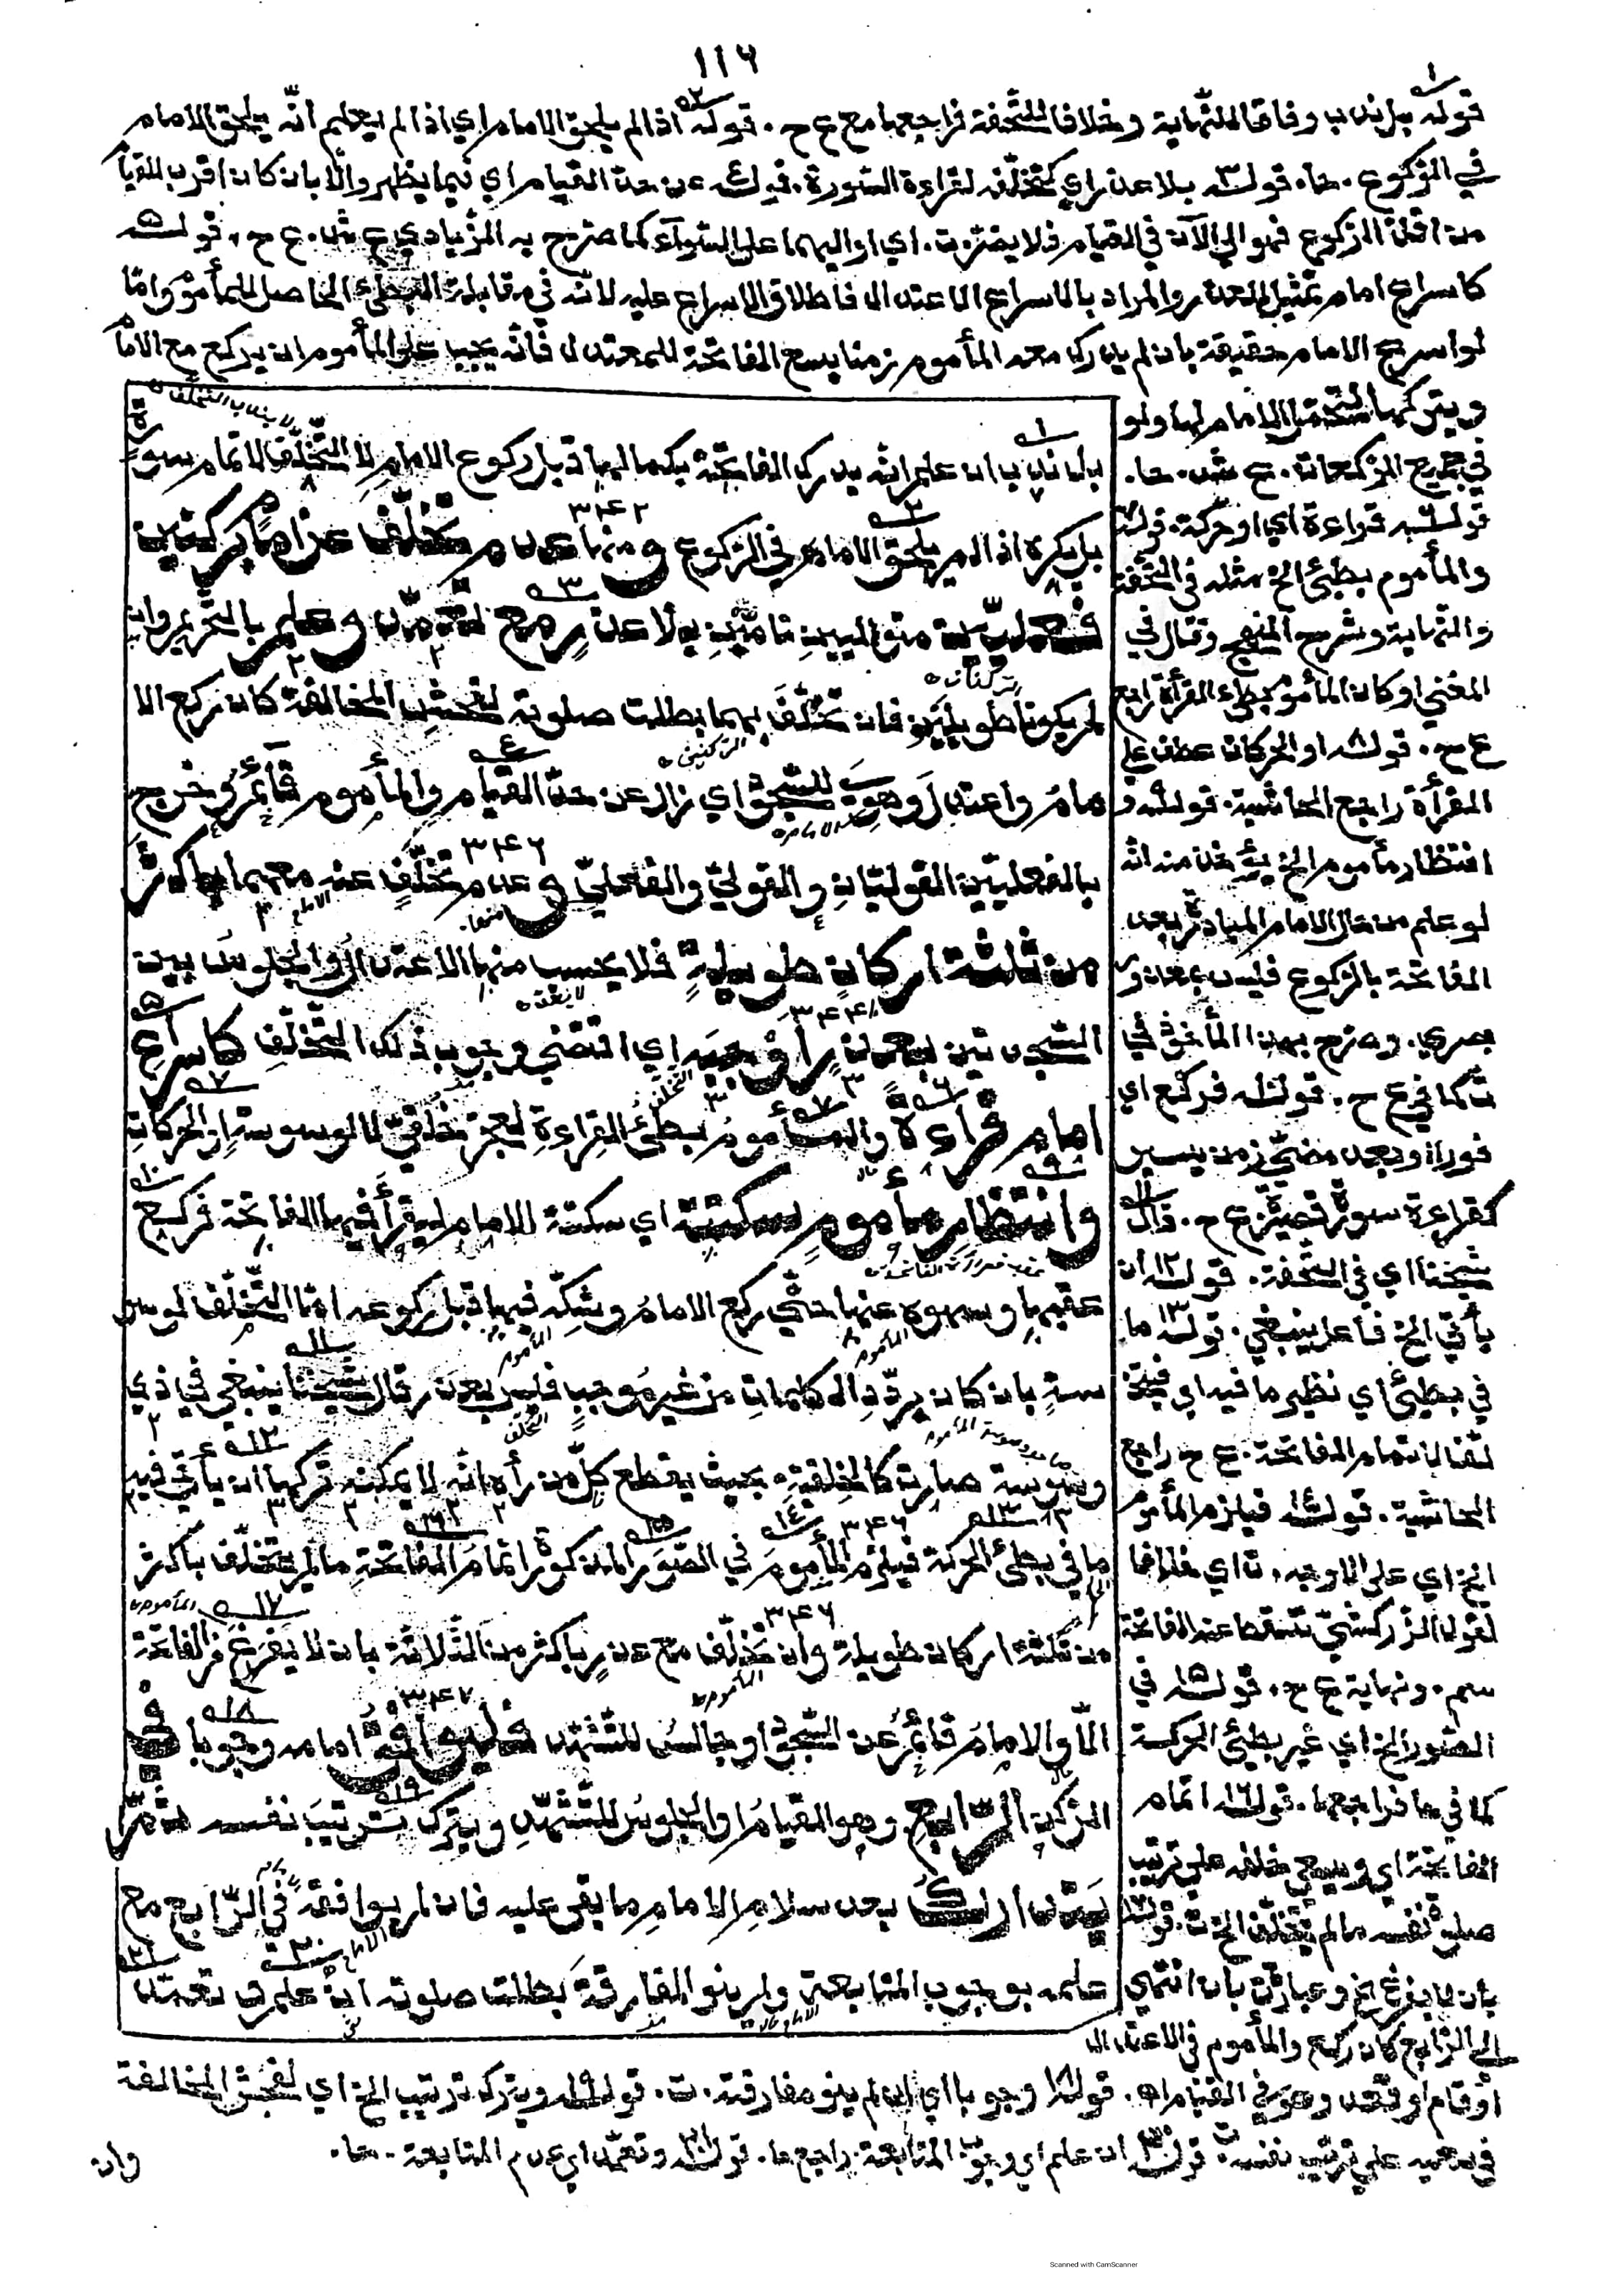 ١١٦
قوله بل ندب وفاقا للنهاية وخلافا للتحفة فراجعها مع ع ح . قوله اذا لم يلحق الامام اي اذا لم يعلم انه يلحق الامام
في الركوع . حا . قوله بلا عذر اي كتخلفه لقراءة السورة . قوله عن حد القيام اي فيما يظهر والا بان كان اقرب للقيام
من اقل الركوع فهو الى الآن في القيام فلا يضر ت . اي او اليهما على السواء كما صرح به الزيادي ع ش . ع ح ، قوله
كاسراع امام تمثيل للعذر والمراد بالاسراع الاعتدال فاطلاق الاسراع عليه لانه في مقابلة البطئ الحاصل للمأموم واما
لو اسرع الامام حقيقة بان لم يدرك معه المأموم زمنا يسع الفاتحة للمعتدل فانه يجب على المأموم ان يركع مع الامام
ويتركها لتحمل الامام لها ولو
في جميع الركعات . ع ش . حا .
قوله قراءة اي او حركة . قوله
والمأموم بطئ الخ مثله في التحفة
والنهاية وشرح المنهج وقال في
المغني او كان المأموم بطئ القرأة راجع
ع ح . قوله او الحركات عطف على
القرأة راجع الحاشية . قوله و
انتظار مأموم الخ يؤخذ منه انه
لو علم من حال الامام المبادرة بعد
الفاتحة بالركوع فليس بعذر و
بصري . وصرح بهذا المأخوذ في
ت كما في ع ح . قوله فركع اي
فورا او بعد مضي زمن يسير
كقراءة سورة قصيرة ع ح . قال
شيخنا اي في التحفة . قوله ان
يأتي الخ فاعل ينبغي . قوله ما
في بطئ اي نظير ما فيه اي فيتخ
لف لاتمام الفاتحة . ع ح راجع
الحاشية . قوله فيلزم المأموم
الخ اي على الاوجه . ت اي خلافا
لقول الزركشي تسقط عنه الفاتحة
سم . ونهاية ع ح . قوله في
الصور الخ اي غير بطئ الحركة
كما في حا فراجعها . قوله اتمام
الفاتحة اي ويسعى خلفه على ترتيب
صلوة نفسه ما لم يتخلف الخ ت . قوله
بان لا يفرغ الخ وعبارة ت بان انتهى
الى الرابع كان ركع والمأموم في الاعتدال
بل ندب ان علم انه يدرك الفاتحة بكمالها قبل ركوع الامام لا التخلف لاتمام سورة
بل يكره اذا لم يلحق الامام في الركوع ومنها عدم تخلف عن امام بركنين
فعليين متواليين تامين بلا عذر مع تعمد وعلم بالتحريم وان
لم يكونا طويلين فان تخلف بهما بطلت صلوته لفحش المخالفة كان ركع الا
مام واعتدل وهوى للسجود اي زال عن حد القيام والمأموم قائم وخرج
بالفعليين القوليان والقولي والفعلي وعدم تخلف عنه معهما باكثر
من ثلثة اركان طويلة فلا يحسب منها الاعتدال والجلوس بين
السجدتين بعذر اوجبه اي اقتضى وجوب ذلك التخلف كاسراع
امام قراءة والمأموم بطئ القراءة لعجز خلقي لا لوسوسة او الحركات
وانتظار مأموم سكتته اي سكتة الامام ليقرأ فيها الفاتحة فركع
عقبها وسهوه عنها حتى ركع الامام وشكه فيها قبل ركوعه اما التخلف لوسو
سة بان كان يردد الكلمات من غير موجب فليس بعذر قال شيخنا ينبغي في ذي
وسوسة صارت كالخلقية بحيث يقطع كل من رأه انه لا يمكنه تركها ان يأتي فيه
ما في بطئ الحركة فيلزم المأموم في الصور المذكورة اتمام الفاتحة ما لم يتخلف باكثر
من ثلثة اركان طويلة وان تخلف مع عذر باكثر من الثلاثة بان لا يفرغ من الفاتحة
الا والامام قائم عن السجود او جالس للتشهد فليوافق امامه وجوبا في
الركن الرابع وهو القيام او الجلوس للتشهد ويترك ترتيب نفسه ثم
يتدارك بعد سلام الامام ما بقي عليه فان لم يوافقه في الرابع مع
علمه بوجوب المتابعة ولم ينو المفارقة بطلت صلوته ان علم وتعمد
او قام او قعد وهو في القيام اه . قوله وجوبا اي ان لم ينو مفارقة . ت . قوله ويترك ترتيب الخ اي لفحش المخالفة
في سعيه على ترتيب نفسه . ت قوله ان علم اي وجوب المتابعة . راجع حا . قوله وتعمد اي عدم المتابعة . حا .
وان
Scanned with CamScanner